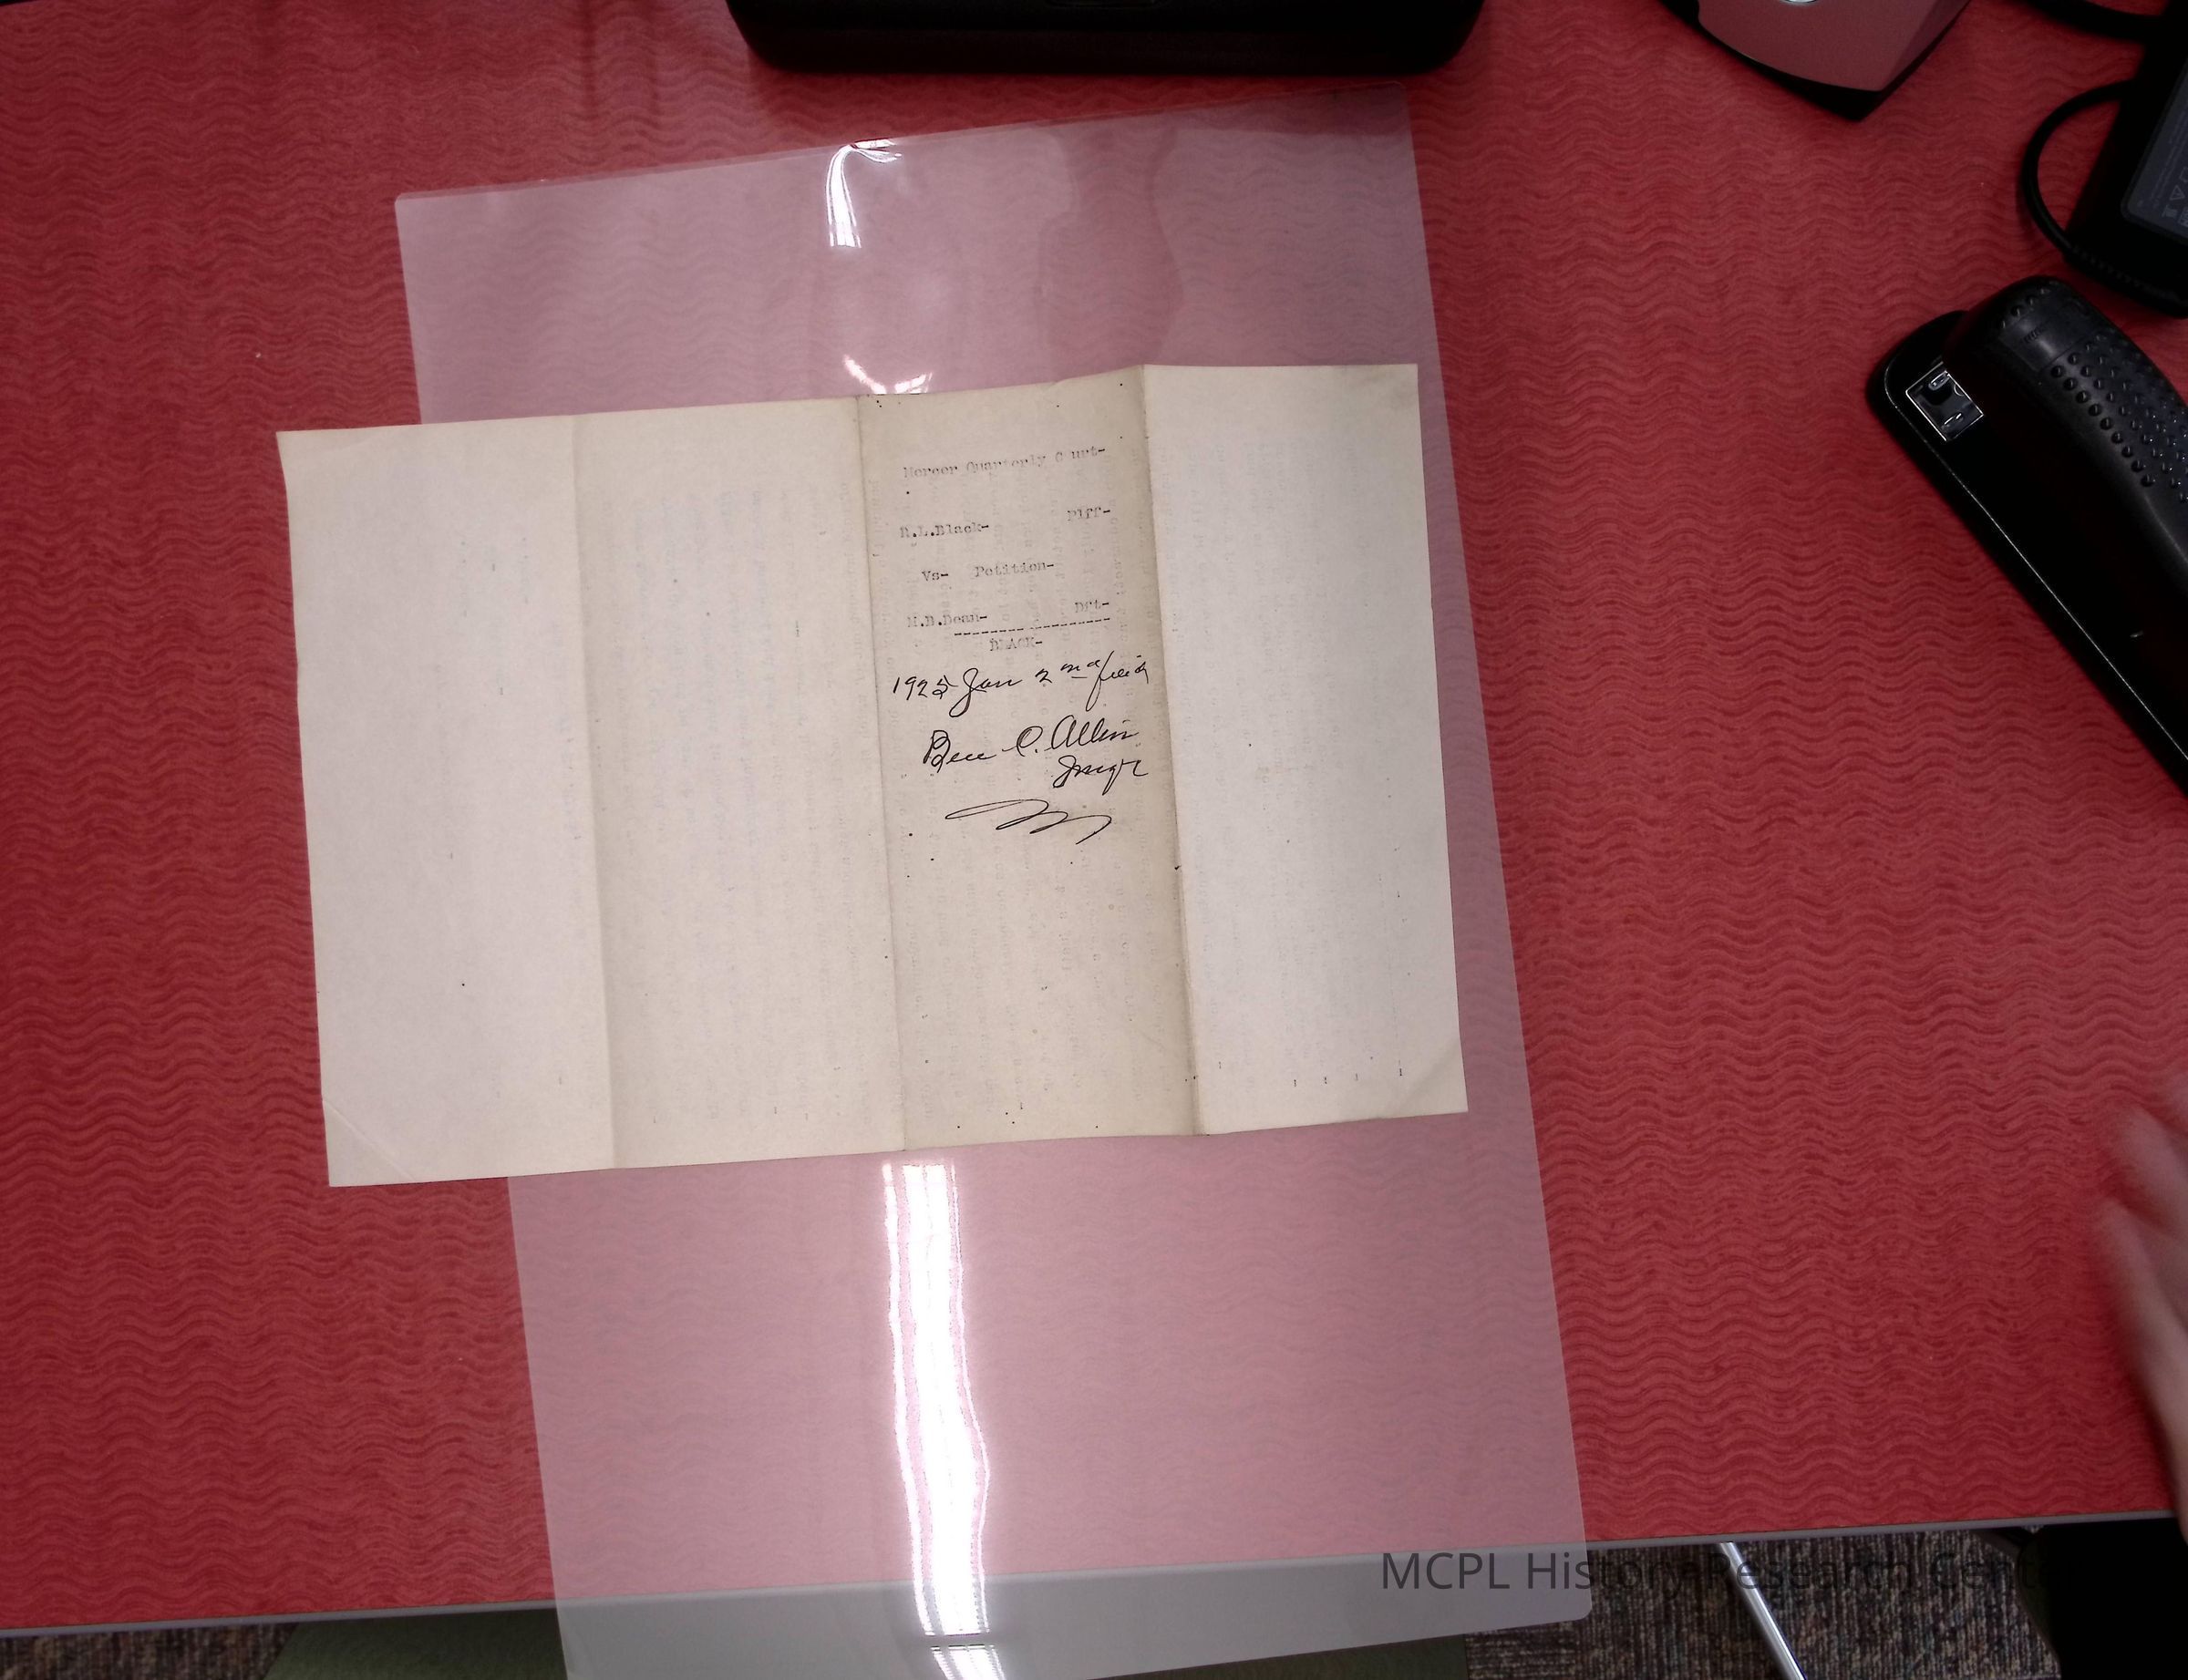 Mercer Quarterly C urt-
R.L.Black- Plff-
Vs- Petition-
M.B.Dean- Dft-
BLACK-
1925 Jan 2nd filed
Ben C. Allin
MCPL History Research Cent